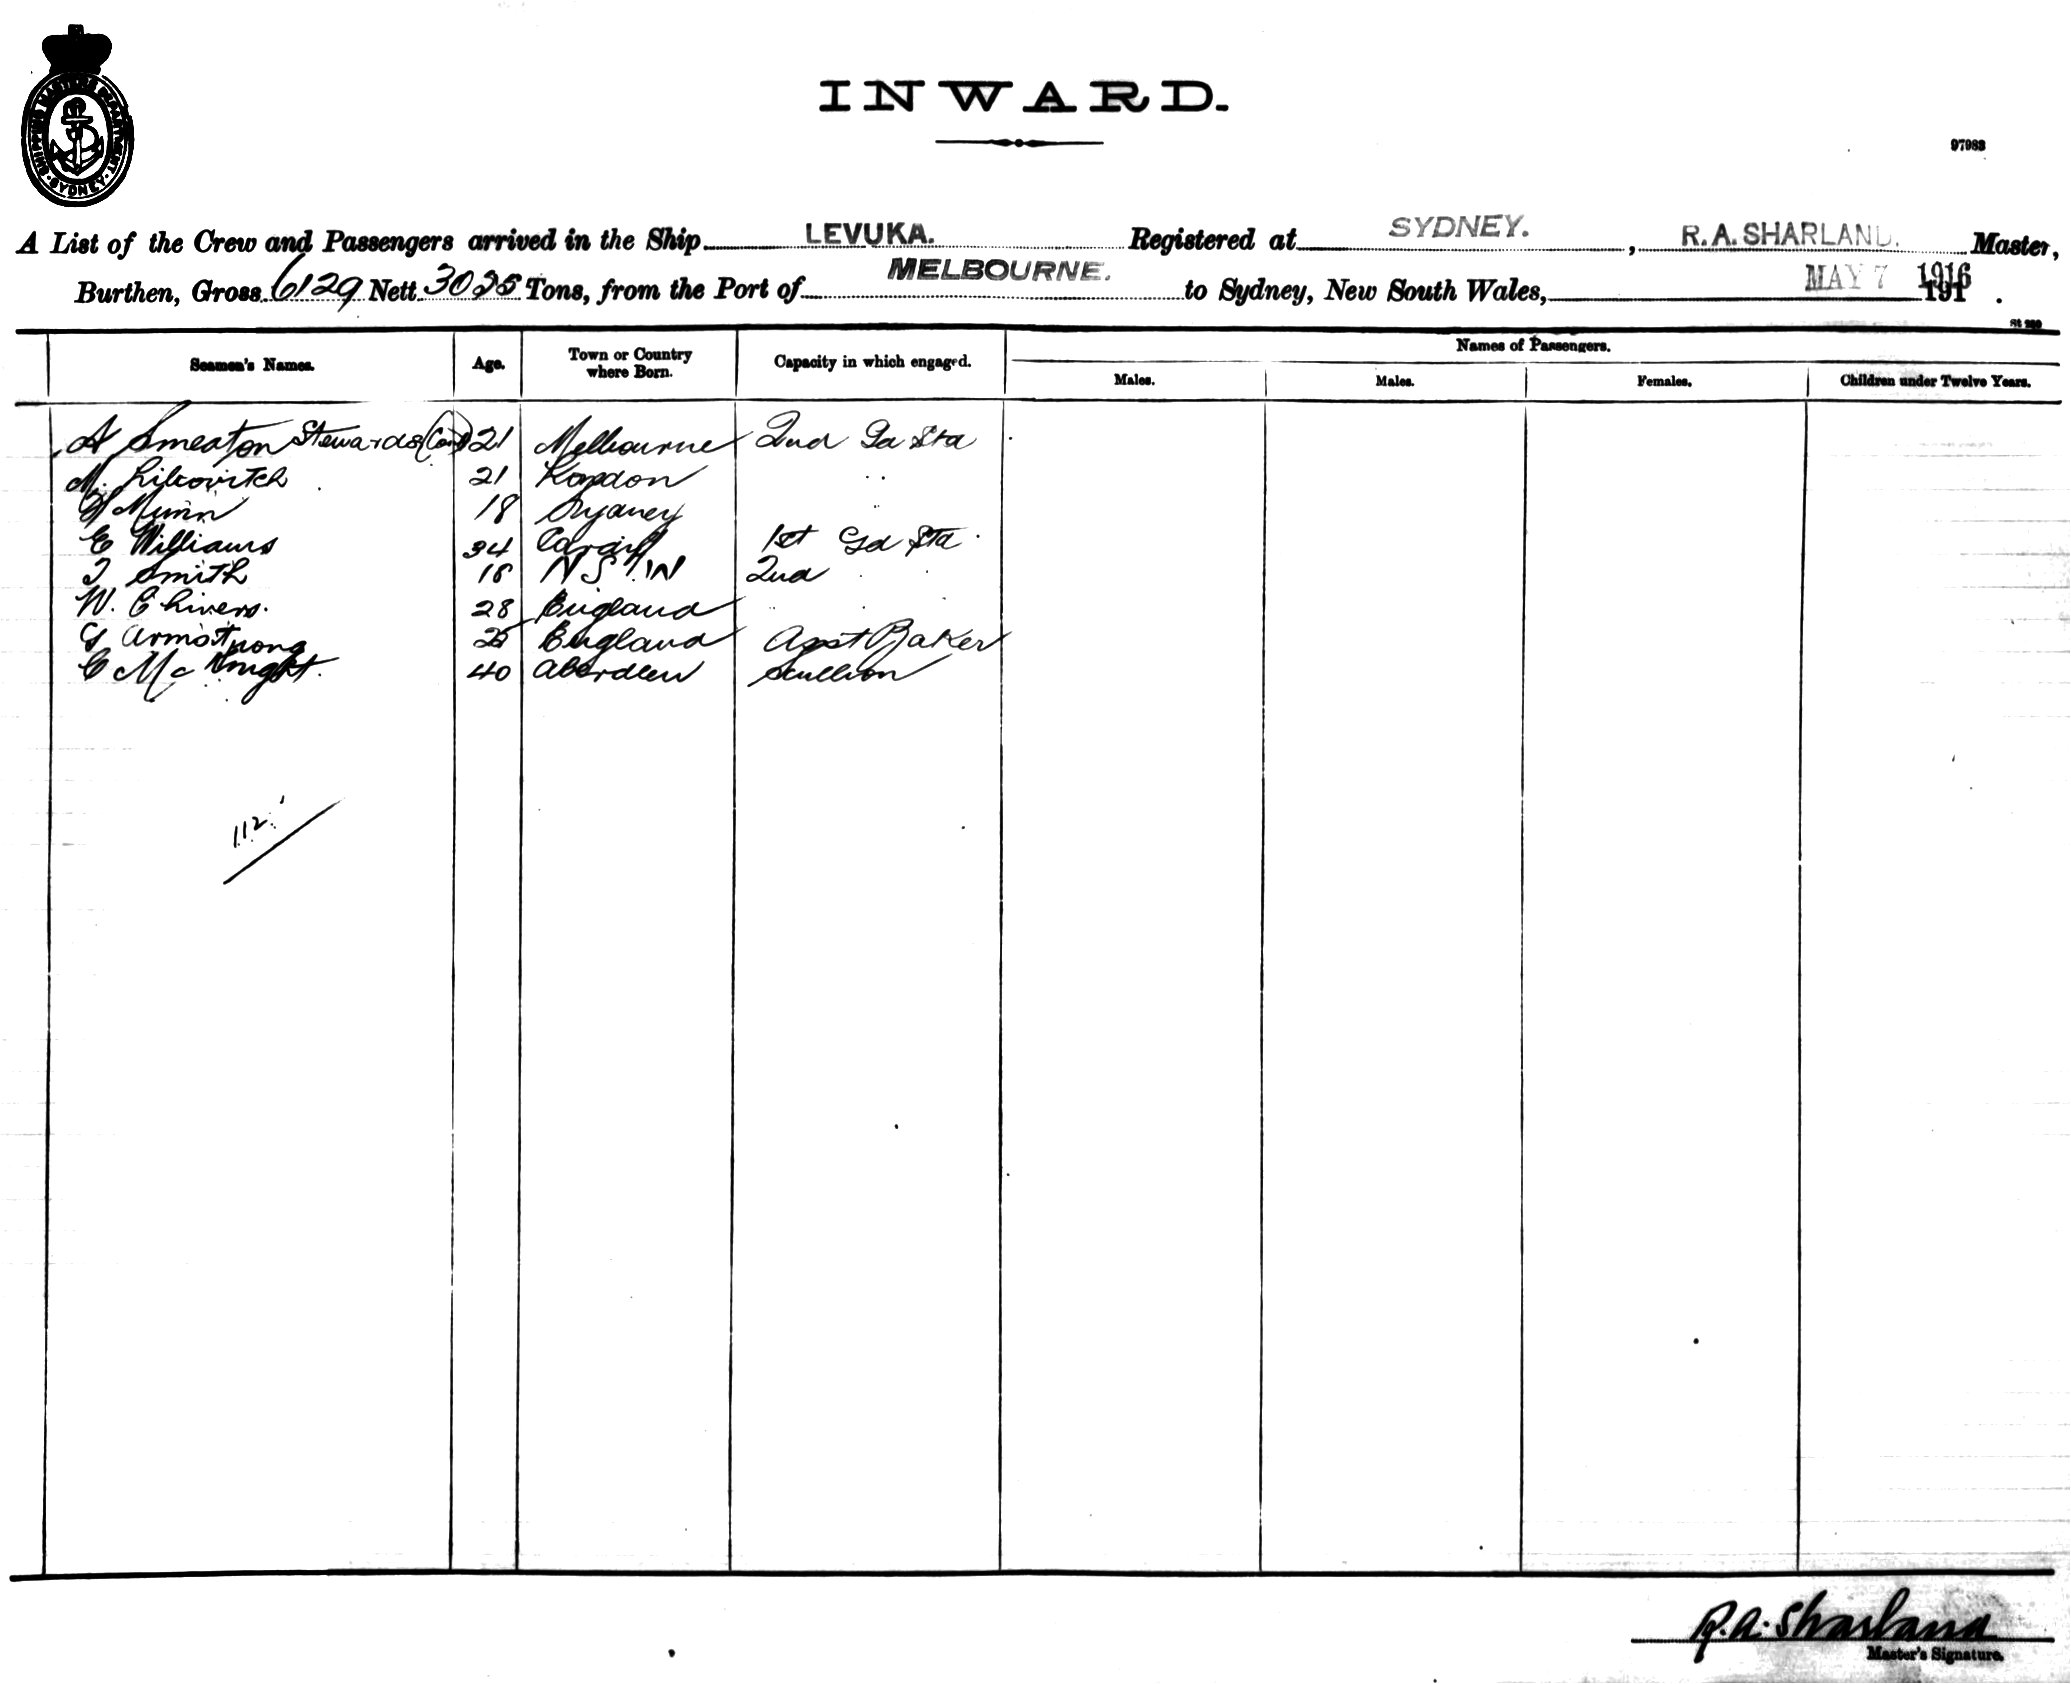 SHIPPING MASTERS DEPARTMENT. SYDNEY.
INWARD.
97983
A List of the Crew and Passengers arrived in the Ship LEVUKA. Registered at SYDNEY. , R. A. SHARLAND. Master,
Burthen, Gross 6129 Nett Tons, from the Port of MELBOURNE. to Sydney, New South Wales, MAY 7 1916 191 .
Seamen's Names. Age. Town or Country where Born. Capacity in which engaged. Names of Passengers.
Males. Males. Females. Children under Twelve Years.
A Smeaton Stewards 21 Melbourne 2nd Sta
M. 21 London " "
Munn 18 Sydney
E Williams 34 Cardiff 1st Sta
Smith 18 N S W 2nd
W. Chivers. 28 England
G Armstrong 25 England Asst Baker
C McKnight 40 Aberdeen Scullion
112
R. A. Sharland
Master's Signature.